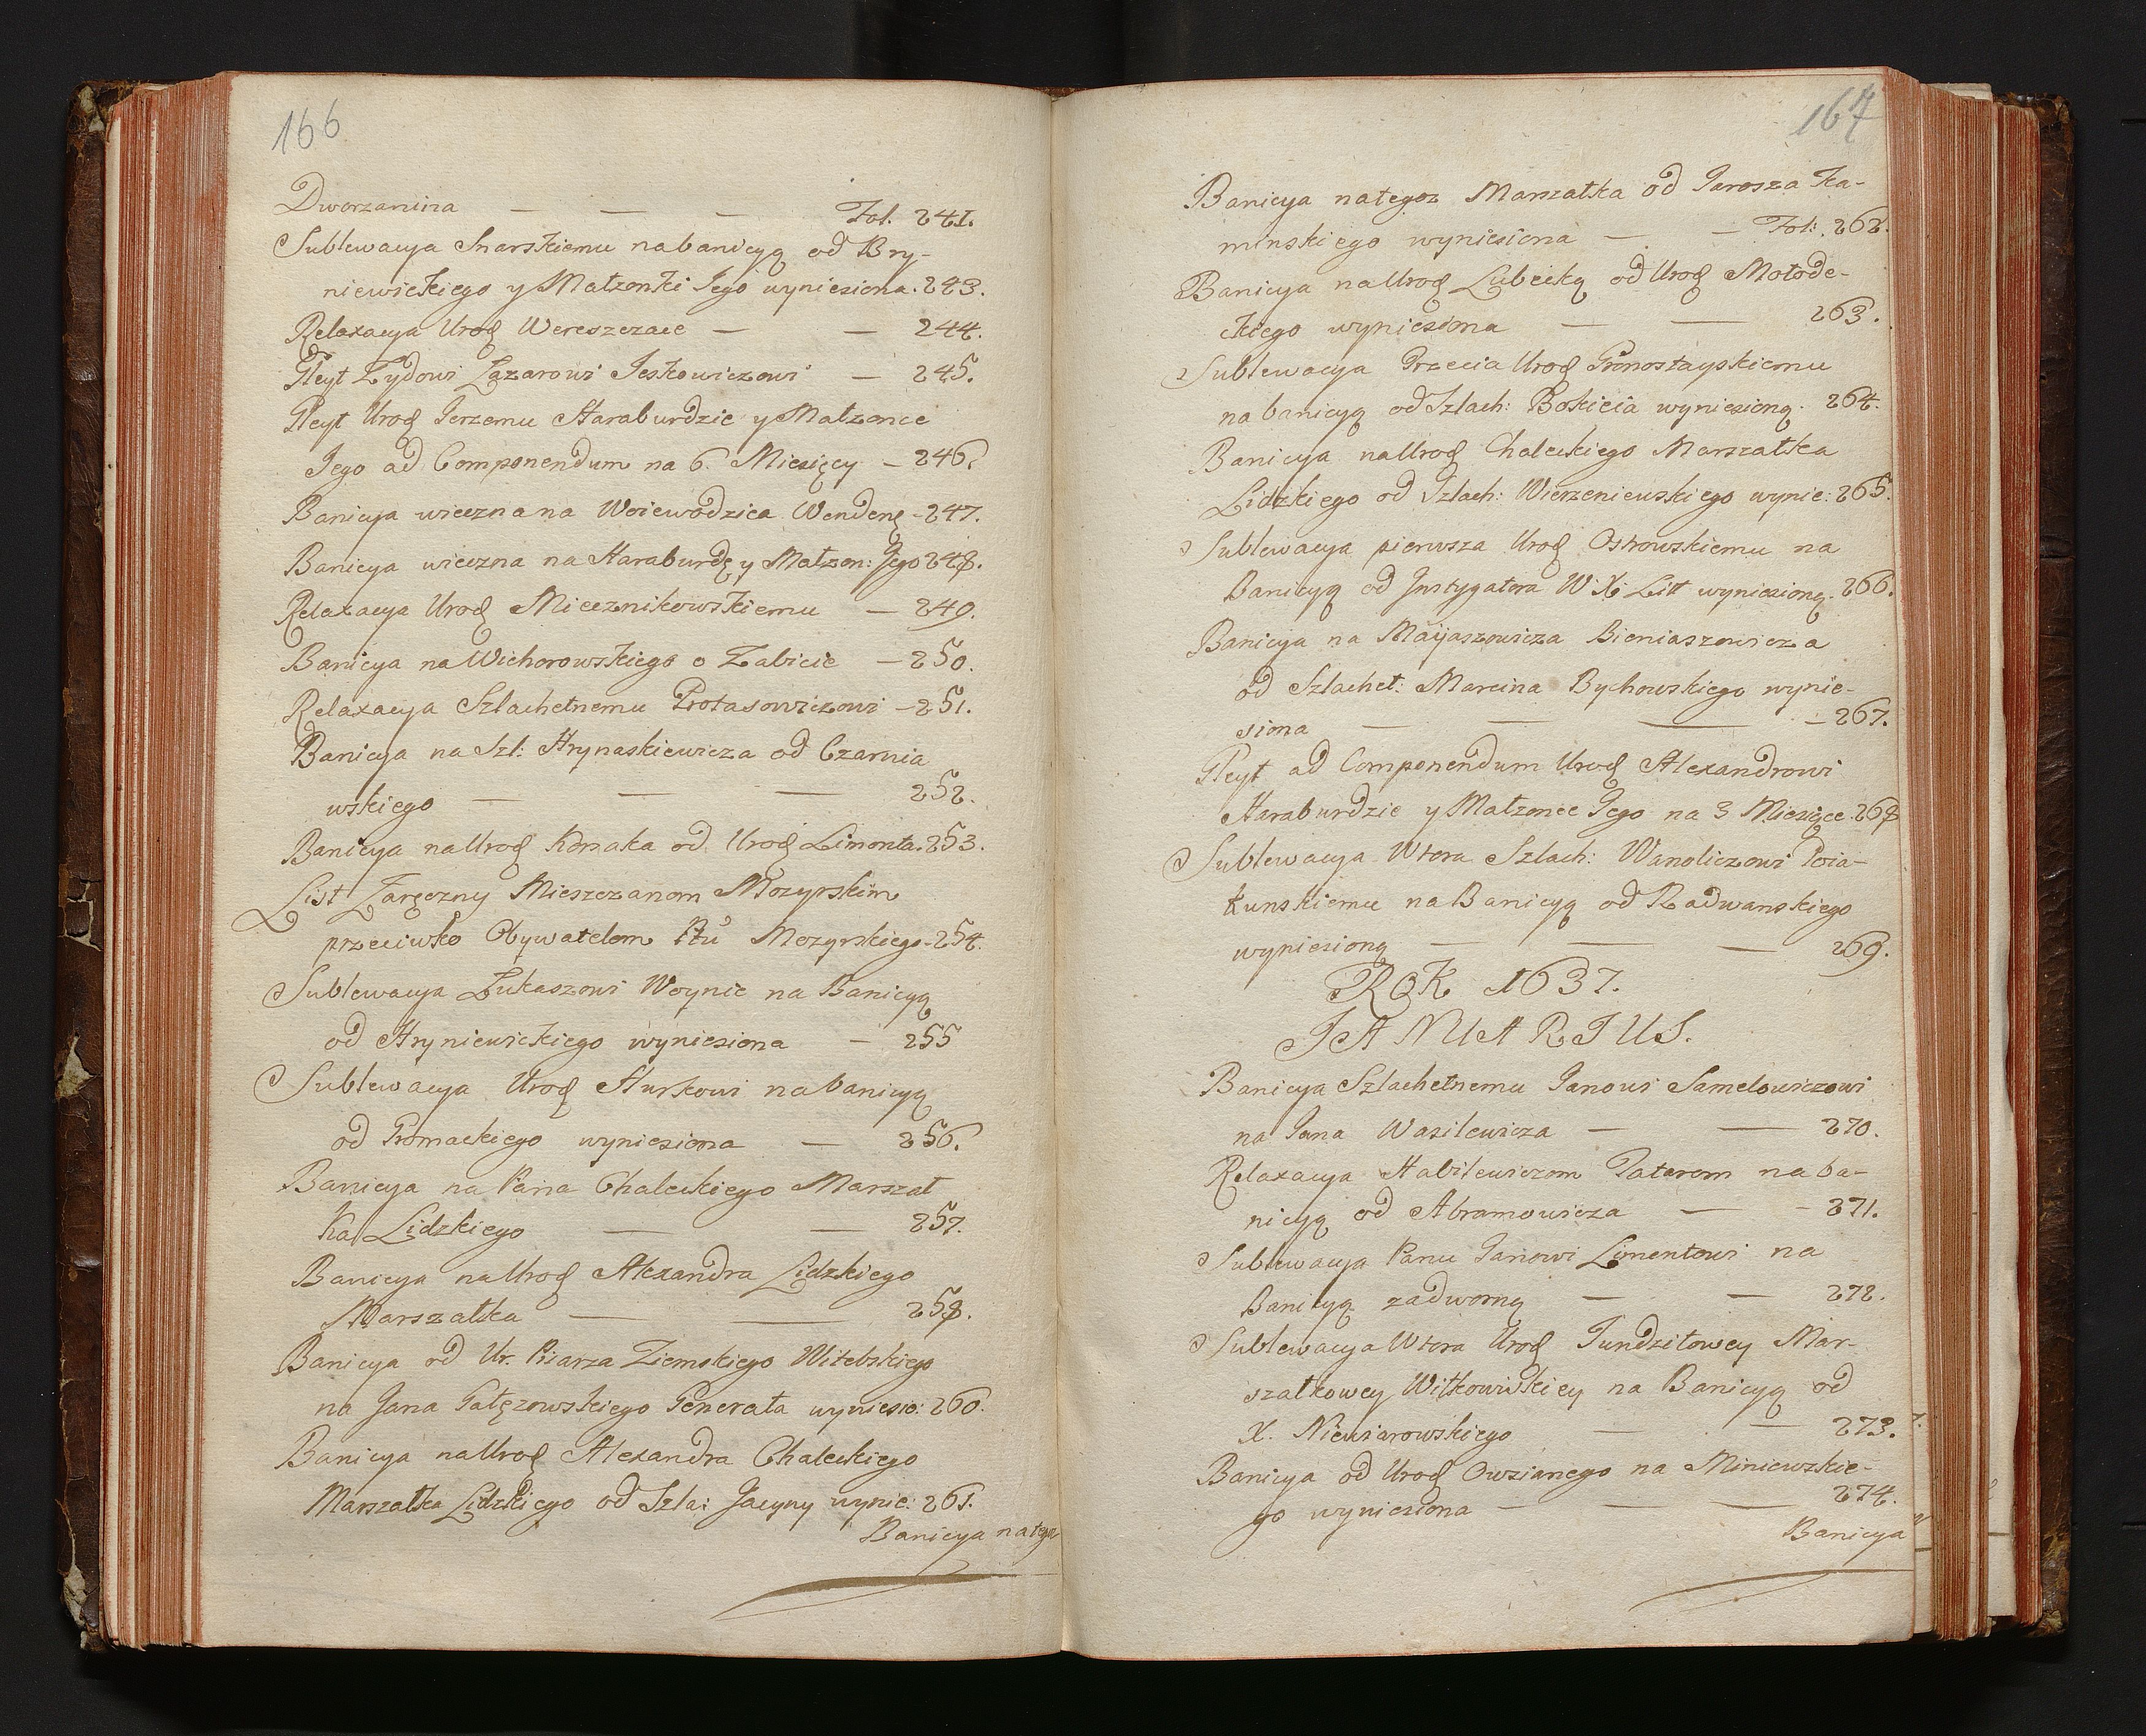 166
Dworzanina — — — Fol. 241.
Sublewacya Snarskiemu na banicyą od Bry-
niewickiego y Małżonki Jego wyniesiona. 243.
Relaxacya Urod Wereszczace — — 244.
Gleyt Żydowi Łazarowi Jeskowiczowi — 245.
Gleyt Urod Jerzemu Haraburdzie y Małzonce
Jego ad Componendum na 6. Miesięcy — 246.
Banicya wieczna na Woiewodzica Wendenq - 247.
Banicya wieczna na Haraburdę y Małzon: Jego 248.
Relaxacya Urod Miecznikowskiemu — 249.
Banicya na Wichorowskiego o Zabicie — 250.
Relaxacya Szlachetnemu Protasowiczowi — 251.
Banicya na Szl: Hrynaskiewicza od Czarnia
wskiego — — — 252.
Banicya na Urod Korsaka od Urod Limonta. 253.
List Zaręczny Mieszczanom Mozyrskim
przeciwko Obywatelom Ptu Mozyrskiego - 254.
Sublewacya Łukaszowi Woynie na Banicyą
od Hryniewickiego wyniesiona — 255
Sublewacya Urod Hurkowi na banicyą
od Gromackiego wyniesiona — 256.
Banicya na Pana Chaleckiego Marszał
ka Lidzkiego — — 257.
Banicya na Urod Alexandra Lidzkiego
Marszałka — — 258.
Banicya od Ur. Pisarza Ziemskiego Witebskiego
na Jana Gałęzowskiego Generała wyniesio: 260.
Banicya na Urod Alexandra Chaleckiego
Marszałka Lidzkiego od Szla: Jacyny wynie: 261.
Banicya na tegoz
167
Banicya na tegoz Marszałka od Jarosza Ka-
minskiego wyniesiona — — Fol: 262.
Banicya na Urod Lubecką od Urod Mołode-
ckiego wyniesiona — — 263.
Sublewacya Trzecia Urod Gronostayskiemu
na banicyą od Szlach: Bokieia wyniesioną. 264.
Banicya na Urod Chaleckiego Marszałka
Lidzkiego od Szlach: Wierzeniewskiego wynie: 265.
Sublewacya pierwsza Urod Ostrowskiemu na
Banicyą od Instygatora W: X: Litt wyniesioną. 266.
Banicya na Mayaszowicza Bieniaszowicza
od Szlachet: Marcina Bychowskiego wynie-
siona — — — 267.
Gleyt ad Componendum Urod Alexandrowi
Haraburdzie y Małzonce Jego na 3 Miesiące. 268
Sublewacya Wtora Szlach: Wanoliczowi Poia-
kunskiemu na Banicyą od Radwanskiego
wyniesioną — — — 269.
ROK 1637.
JANUARIUS.
Banicya Szlachetnemu Janowi Samelowiczowi
na Jana Wasilewicza — — 270.
Relaxacya Habilewiczom Tatarom na ba-
nicyą od Abramowicza — - 271.
Sublewacya Panu Janowi Limontowi na
Banicyą zadworną — — 272.
Sublewacya Wtora Urod Jundziłowey Mar-
szałkowey Wiłkowiskiey na Banicyą od
X. Niewiarowskiego — — 273.
Banicya od Urod Owsianego na Miniewskie-
go wyniesiona — — — 274.
Banicya